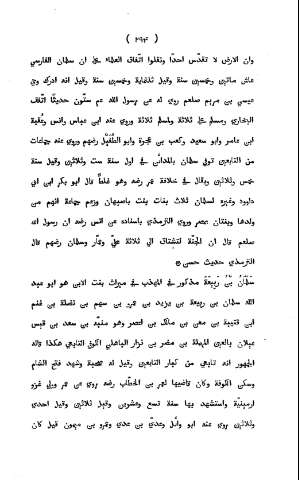 ( ٢٩٣ )
وان الارض لا تقدّس احدا ونقلوا اتّفاق العلماء على ان سلمان الفارسي
عاش مائتين وخمسين سنة وقيل ثلثمائة وخمسين سنة وقيل انه ادرك وصي
عيسى بن مريم صلعم روي له عن رسول الله صعم ستّون حديثا اتّفقا
البخاري ومسلم على ثلثة ولمسلم ثلثة وروي عنه ابن عباس وانس وعُقبة
ابن عامر وابو سعيد وكعب بن عُجرة وابو الطُّفَيْل رضهم وروي عنه جماعات
من التابعين توفي سلمان بالمدائن في اول سنة ست وثلثين وقيل سنة
خمس وثلثين ويقال في خلافة عمر رضه وهو غلط قال ابو بكر ابن ابي
داود وغيره لسلمان ثلاث بنات بنت باصبهان وزعم جماعة انهم من
ولدها وبنتان بمصر وروى الترمذي باسناده عن انس رضه ان رسول الله
صلعم قال ان الجنّة لتشتاق الى ثلثة عليّ وعمّار وسلمان رضهم قال
الترمذي حديث حسن ۞
سَلْمَانُ بْنُ رَبِيعَةَ مذكور في المهذب في ميراث بنت الابن هو ابو عبد
الله سلمان بن ربيعة بن يزيد بن عمرو بن سهم بن نضلة بن غنم
ابن قتيبة بن معن بن مالك بن اعصر وهو منبّه بن سعد بن قيس
عيلان بالعين المهملة بن مضر بن نزار الباهلي الكوفي التابعي هكذا قاله
الجمهور انه تابعي من كبار التابعين وقيل له صحبة وشهد فتح الشام
وسكن الكوفة وكان قاضيها لعمر بن الخطّاب رضه روى عن عمر وولي غزو
ارمينية واستشهد بها سنة تسع وعشرين وقيل ثلثين وقيل احدى
وثلثين روى عنه ابو وائل وعديّ بن عدي وعمرو بن ميمون قيل كان